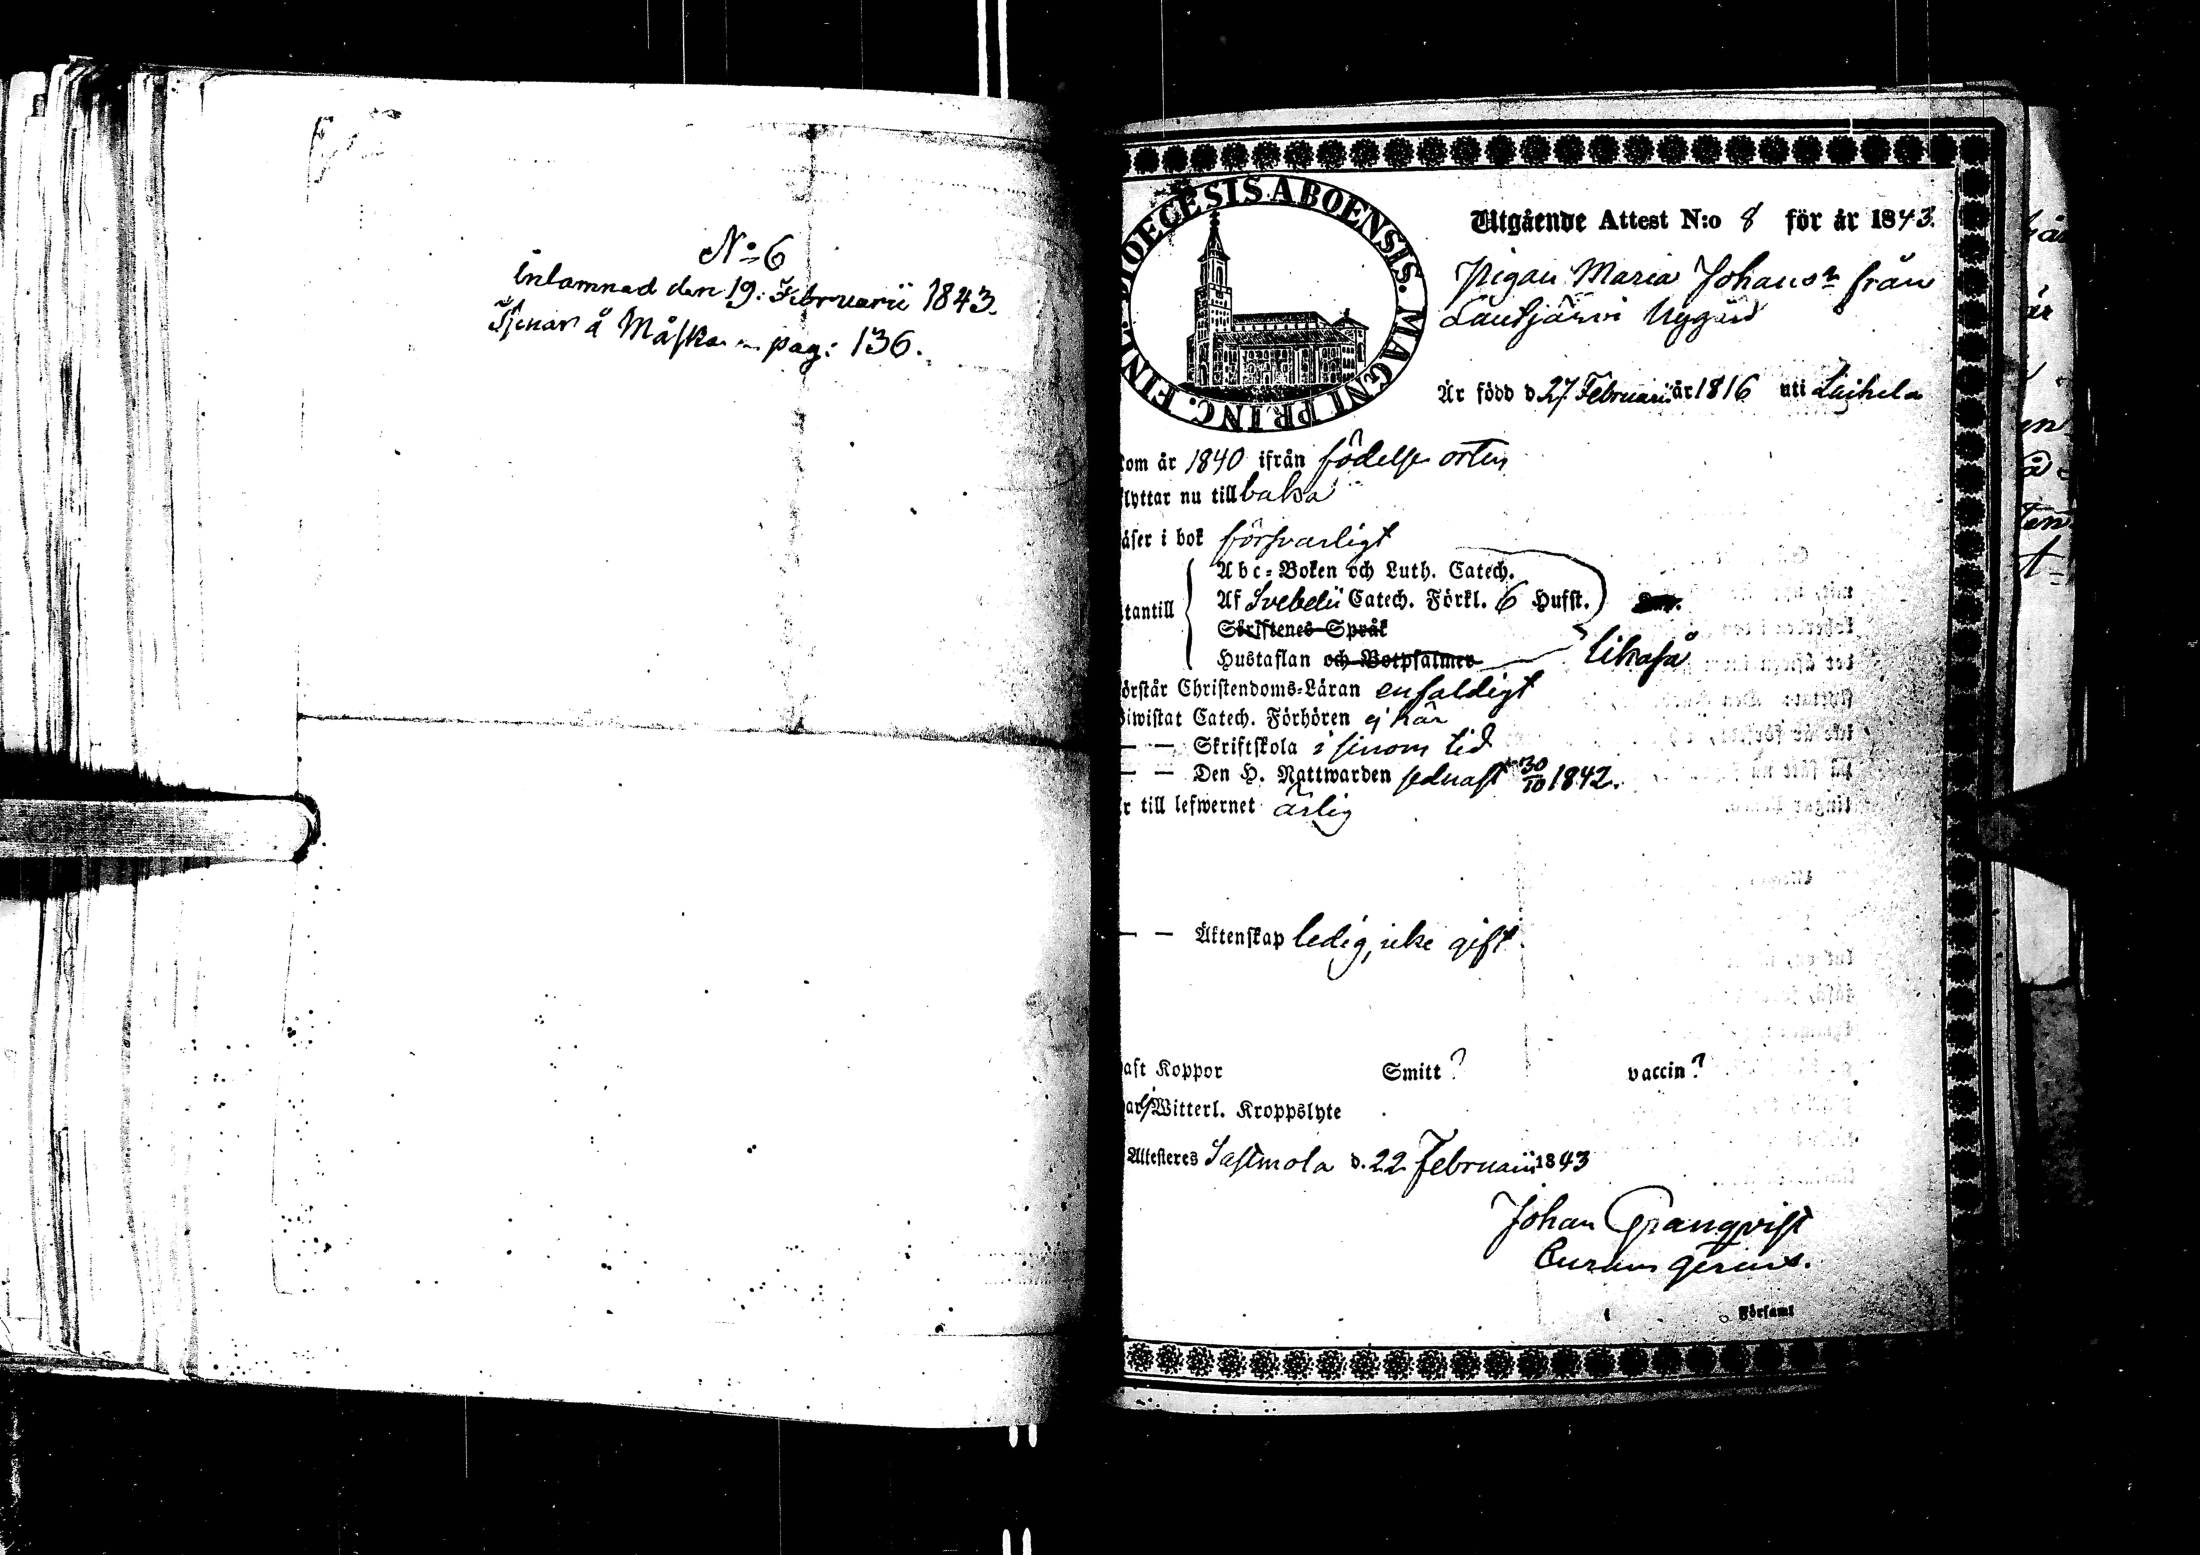 N:o 6
inlämnad den 19. Februarii 1843.
Tjenar å Måska pag: 136.
DIOECESIS ABOENSIS. MAGNI PRINC. FINL.
Utgående Attest N:o 8 för år 1843.
Pigan Maria Johansr från
Lautjärvi Nygård
Är född d 27 Februarii år 1816 uti Laihela
kom år 1840 ifrån födelse orten
flyttar nu till baka
läser i bok försvarligt
Abc-Boken och Luth. Catech.
utantill Af Svebelii Catech. Förkl. 6 Hufst.
Skriftenes Språk
Hustaflan och Botpsalmer likaså
förstår Christendoms-Läran enfaldigt
Biwistat Catech. Förhören ej här
— — Skriftskola i sinom tid
— — Den H. Nattwarden sednast 30/10 1842.
är till lefwernet ärlig
— — Äktenskap ledig, icke gift
haft Koppor Smitt? vaccin?
har ej Witterl. Kroppslyte
Attesteres Sastmola d. 22 Februarii 1843
Johan Granqvist
Curam gerens.
Församl